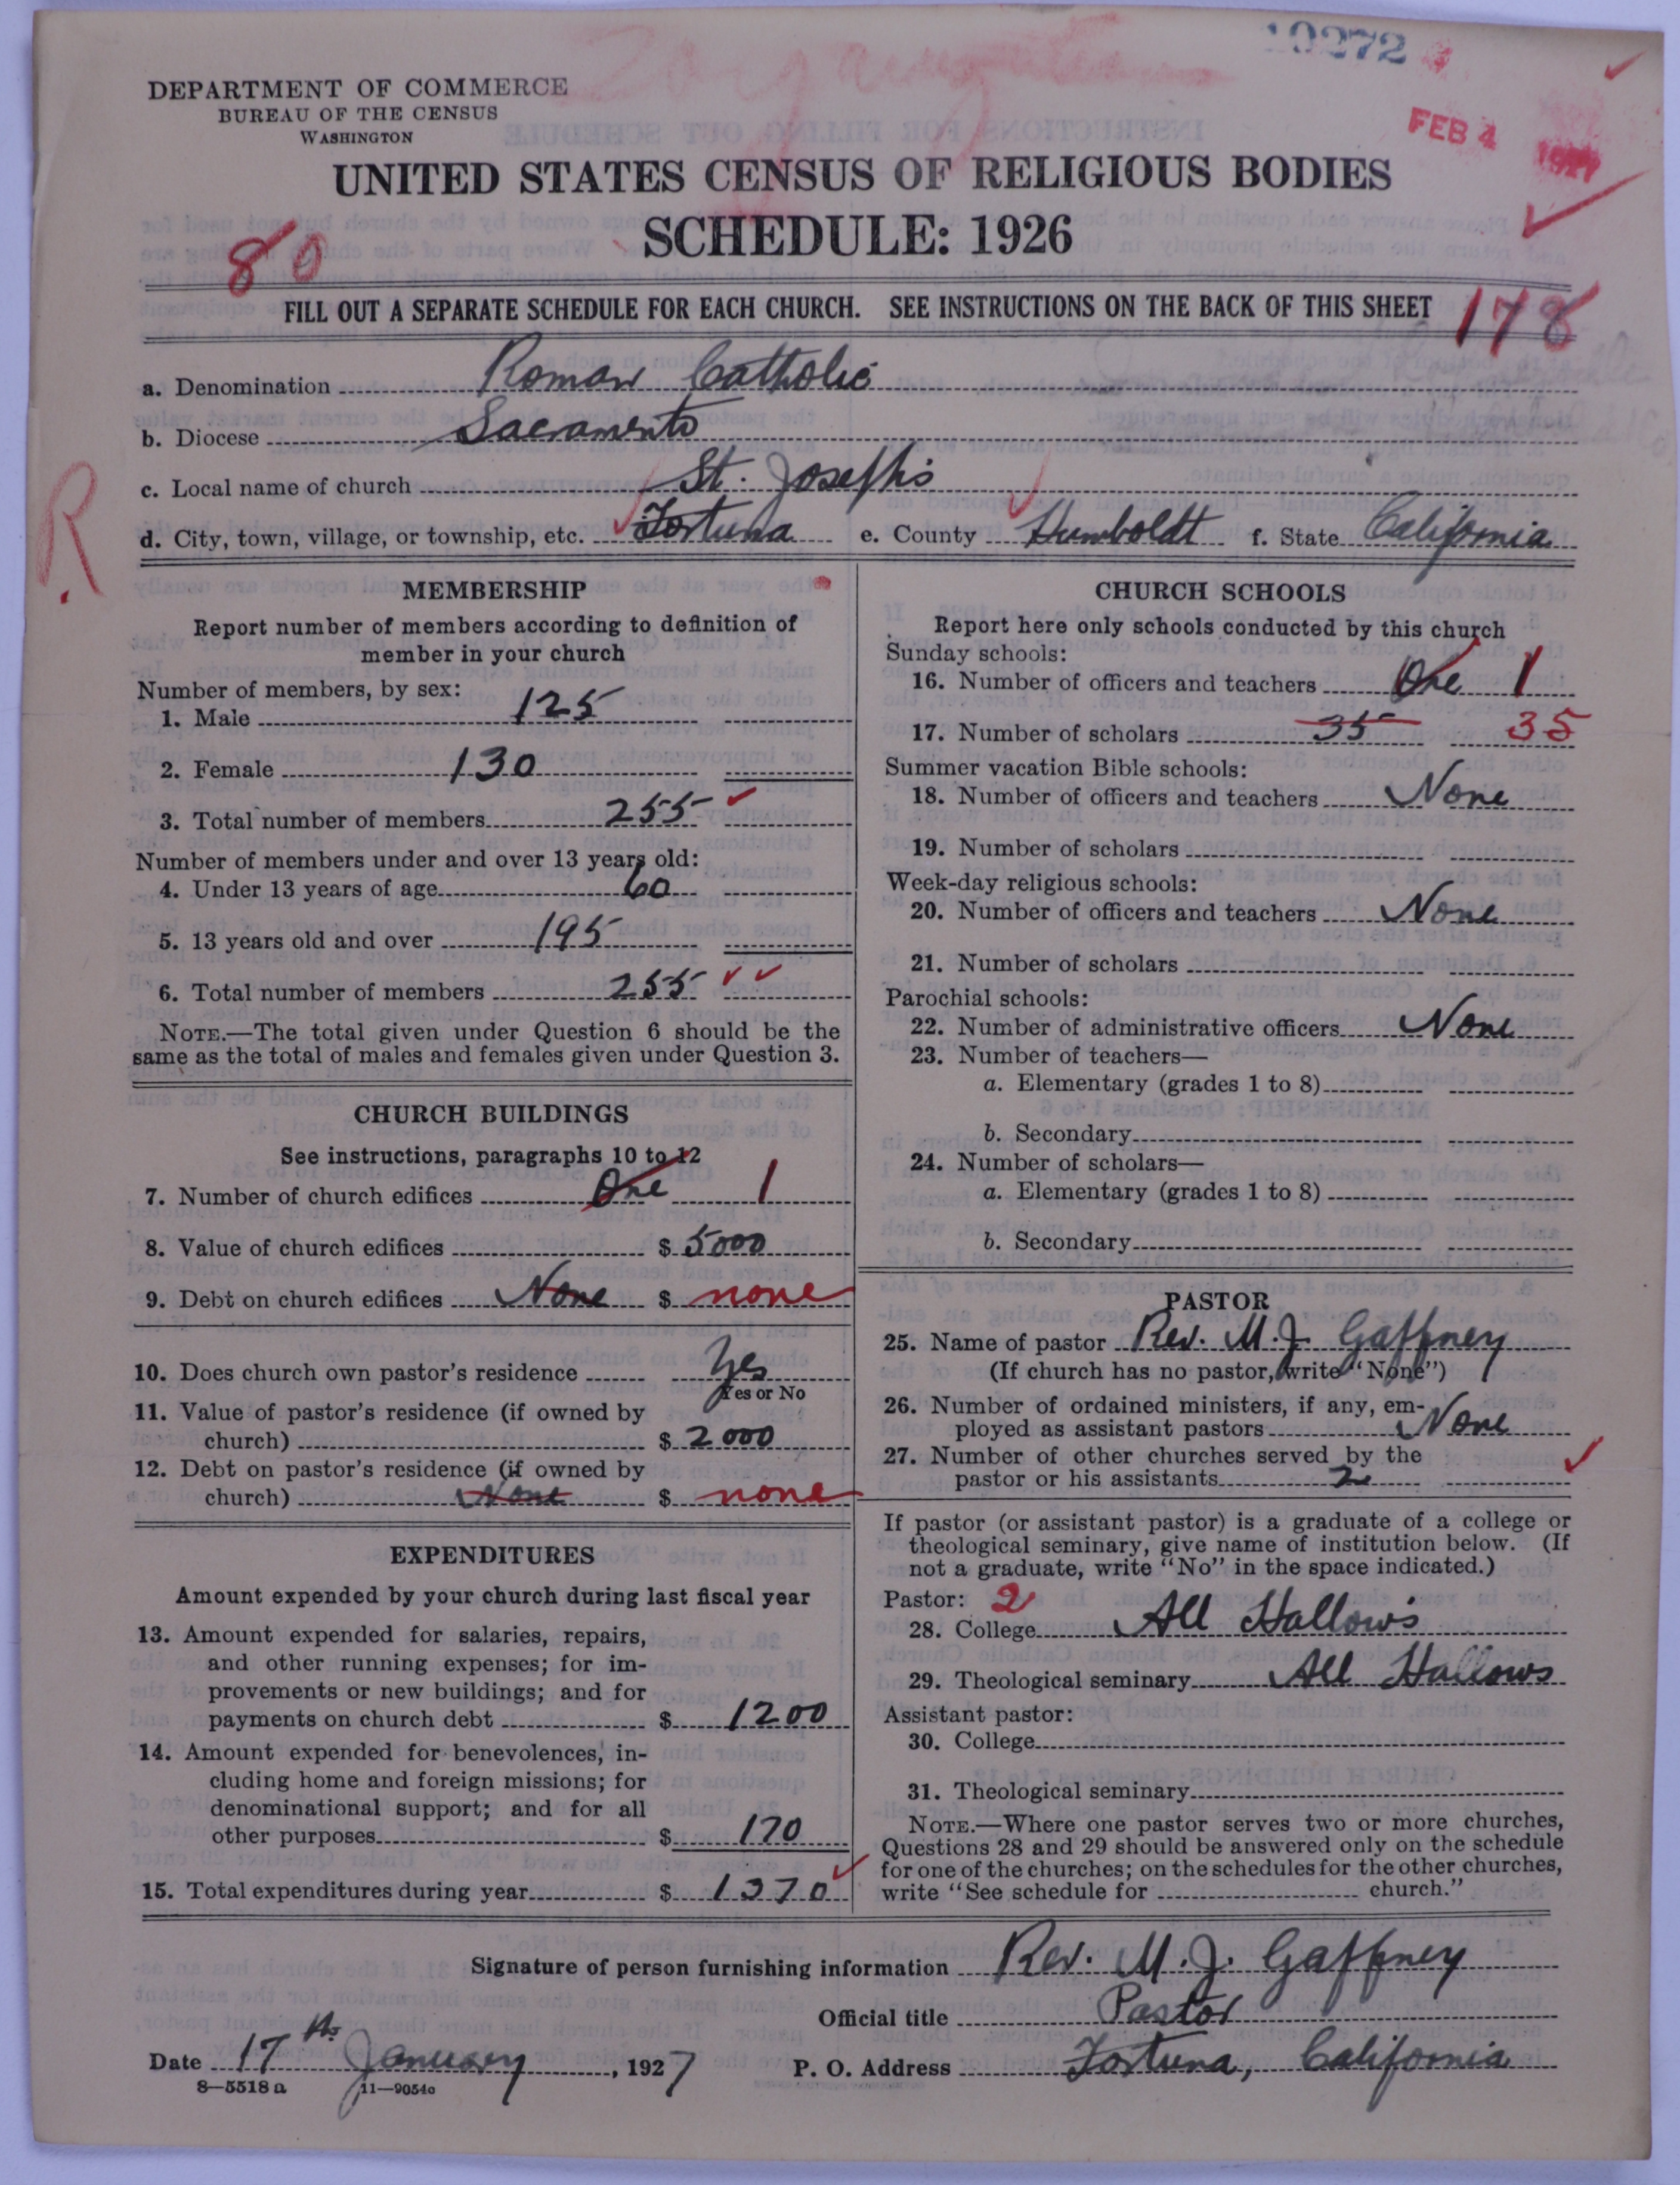 10272
DEPARTMENT OF COMMERCE
BUREAU OF THE CENSUS
WASHINGTON
FEB 4 1927
UNITED STATES CENSUS OF RELIGIOUS BODIES
SCHEDULE: 1926
80
FILL OUT A SEPARATE SCHEDULE FOR EACH CHURCH. SEE INSTRUCTIONS ON THE BACK OF THIS SHEET
178
a. Denomination Roman Catholic
b. Diocese Sacramento
c. Local name of church St. Joseph's
R.
d. City, town, village, or township, etc. Fortuna e. County Humboldt f. State California
MEMBERSHIP
Report number of members according to definition of
member in your church
Number of members, by sex:
1. Male 125
2. Female 130
3. Total number of members 255
Number of members under and over 13 years old:
4. Under 13 years of age 60
5. 13 years old and over 195
6. Total number of members 255
NOTE.—The total given under Question 6 should be the
same as the total of males and females given under Question 3.
CHURCH BUILDINGS
See instructions, paragraphs 10 to 12
7. Number of church edifices One 1
8. Value of church edifices $ 5000
9. Debt on church edifices None $ none
10. Does church own pastor's residence Yes
Yes or No
11. Value of pastor's residence (if owned by
church) $ 2000
12. Debt on pastor's residence (if owned by
church) None $ none
EXPENDITURES
Amount expended by your church during last fiscal year
13. Amount expended for salaries, repairs,
and other running expenses; for im-
provements or new buildings; and for
payments on church debt $ 1200
14. Amount expended for benevolences, in-
cluding home and foreign missions; for
denominational support; and for all
other purposes $ 170
15. Total expenditures during year $ 1370
CHURCH SCHOOLS
Report here only schools conducted by this church
Sunday schools:
16. Number of officers and teachers One 1
17. Number of scholars 35 35
Summer vacation Bible schools:
18. Number of officers and teachers None
19. Number of scholars
Week-day religious schools:
20. Number of officers and teachers None
21. Number of scholars
Parochial schools:
22. Number of administrative officers None
23. Number of teachers—
a. Elementary (grades 1 to 8)
b. Secondary
24. Number of scholars—
a. Elementary (grades 1 to 8)
b. Secondary
PASTOR
25. Name of pastor Rev. M. J. Gaffney
(If church has no pastor, write "None")
26. Number of ordained ministers, if any, em-
ployed as assistant pastors None
27. Number of other churches served by the
pastor or his assistants 2
If pastor (or assistant pastor) is a graduate of a college or
theological seminary, give name of institution below. (If
not a graduate, write "No" in the space indicated.)
Pastor: 2
28. College All Hallows
29. Theological seminary All Hallows
Assistant pastor:
30. College
31. Theological seminary
NOTE.—Where one pastor serves two or more churches,
Questions 28 and 29 should be answered only on the schedule
for one of the churches; on the schedules for the other churches,
write "See schedule for church."
Signature of person furnishing information Rev. M. J. Gaffney
Official title Pastor
Date 17th January, 1927 P. O. Address Fortuna, California
8—5518 a 11—9054c